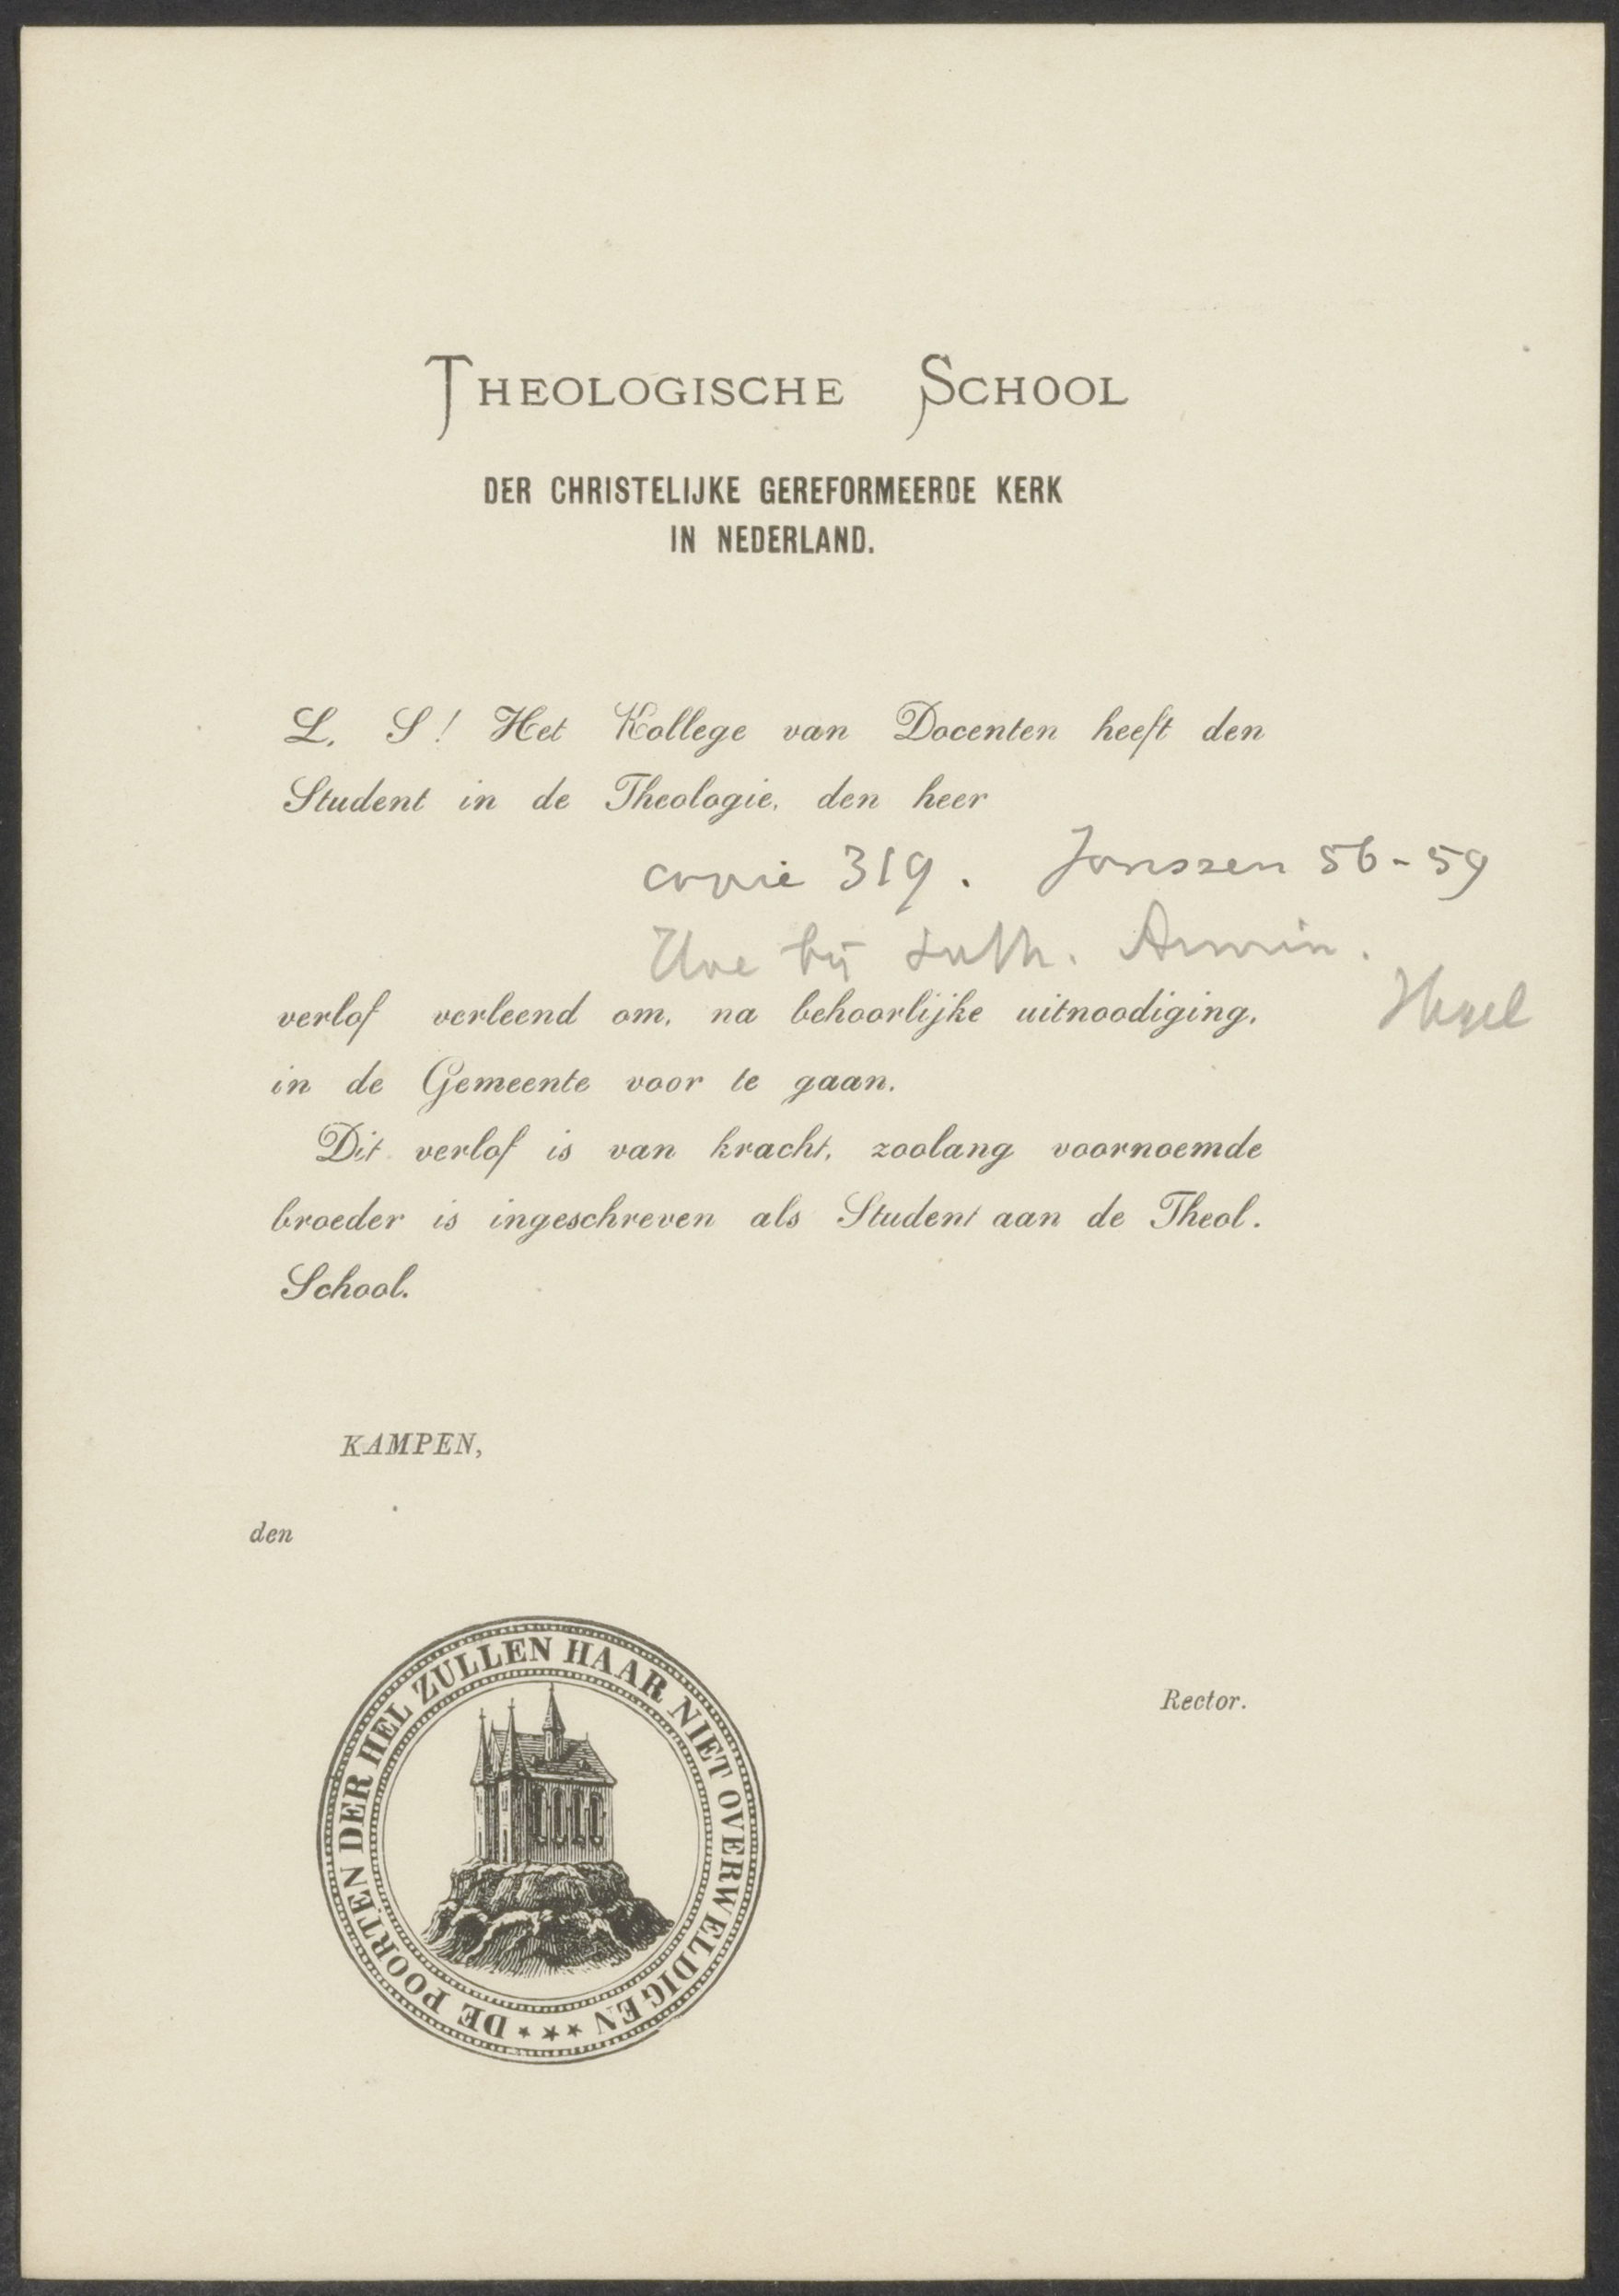 THEOLOGISCHE SCHOOL
DER CHRISTELIJKE GEREFORMEERDE KERK
IN NEDERLAND.
L. S! Het Kollege van Docenten heeft den
Student in de Theologie, den heer
copie 319. Janssen 56-59
bij Luth.
verlof verleend om, na behoorlijke uitnoodiging,
in de Gemeente voor te gaan.
Dit verlof is van kracht, zoolang voornoemde
broeder is ingeschreven als Student aan de Theol.
School.
KAMPEN,
den
Rector.
DE POORTEN DER HEL ZULLEN HAAR NIET OVERWELDIGEN